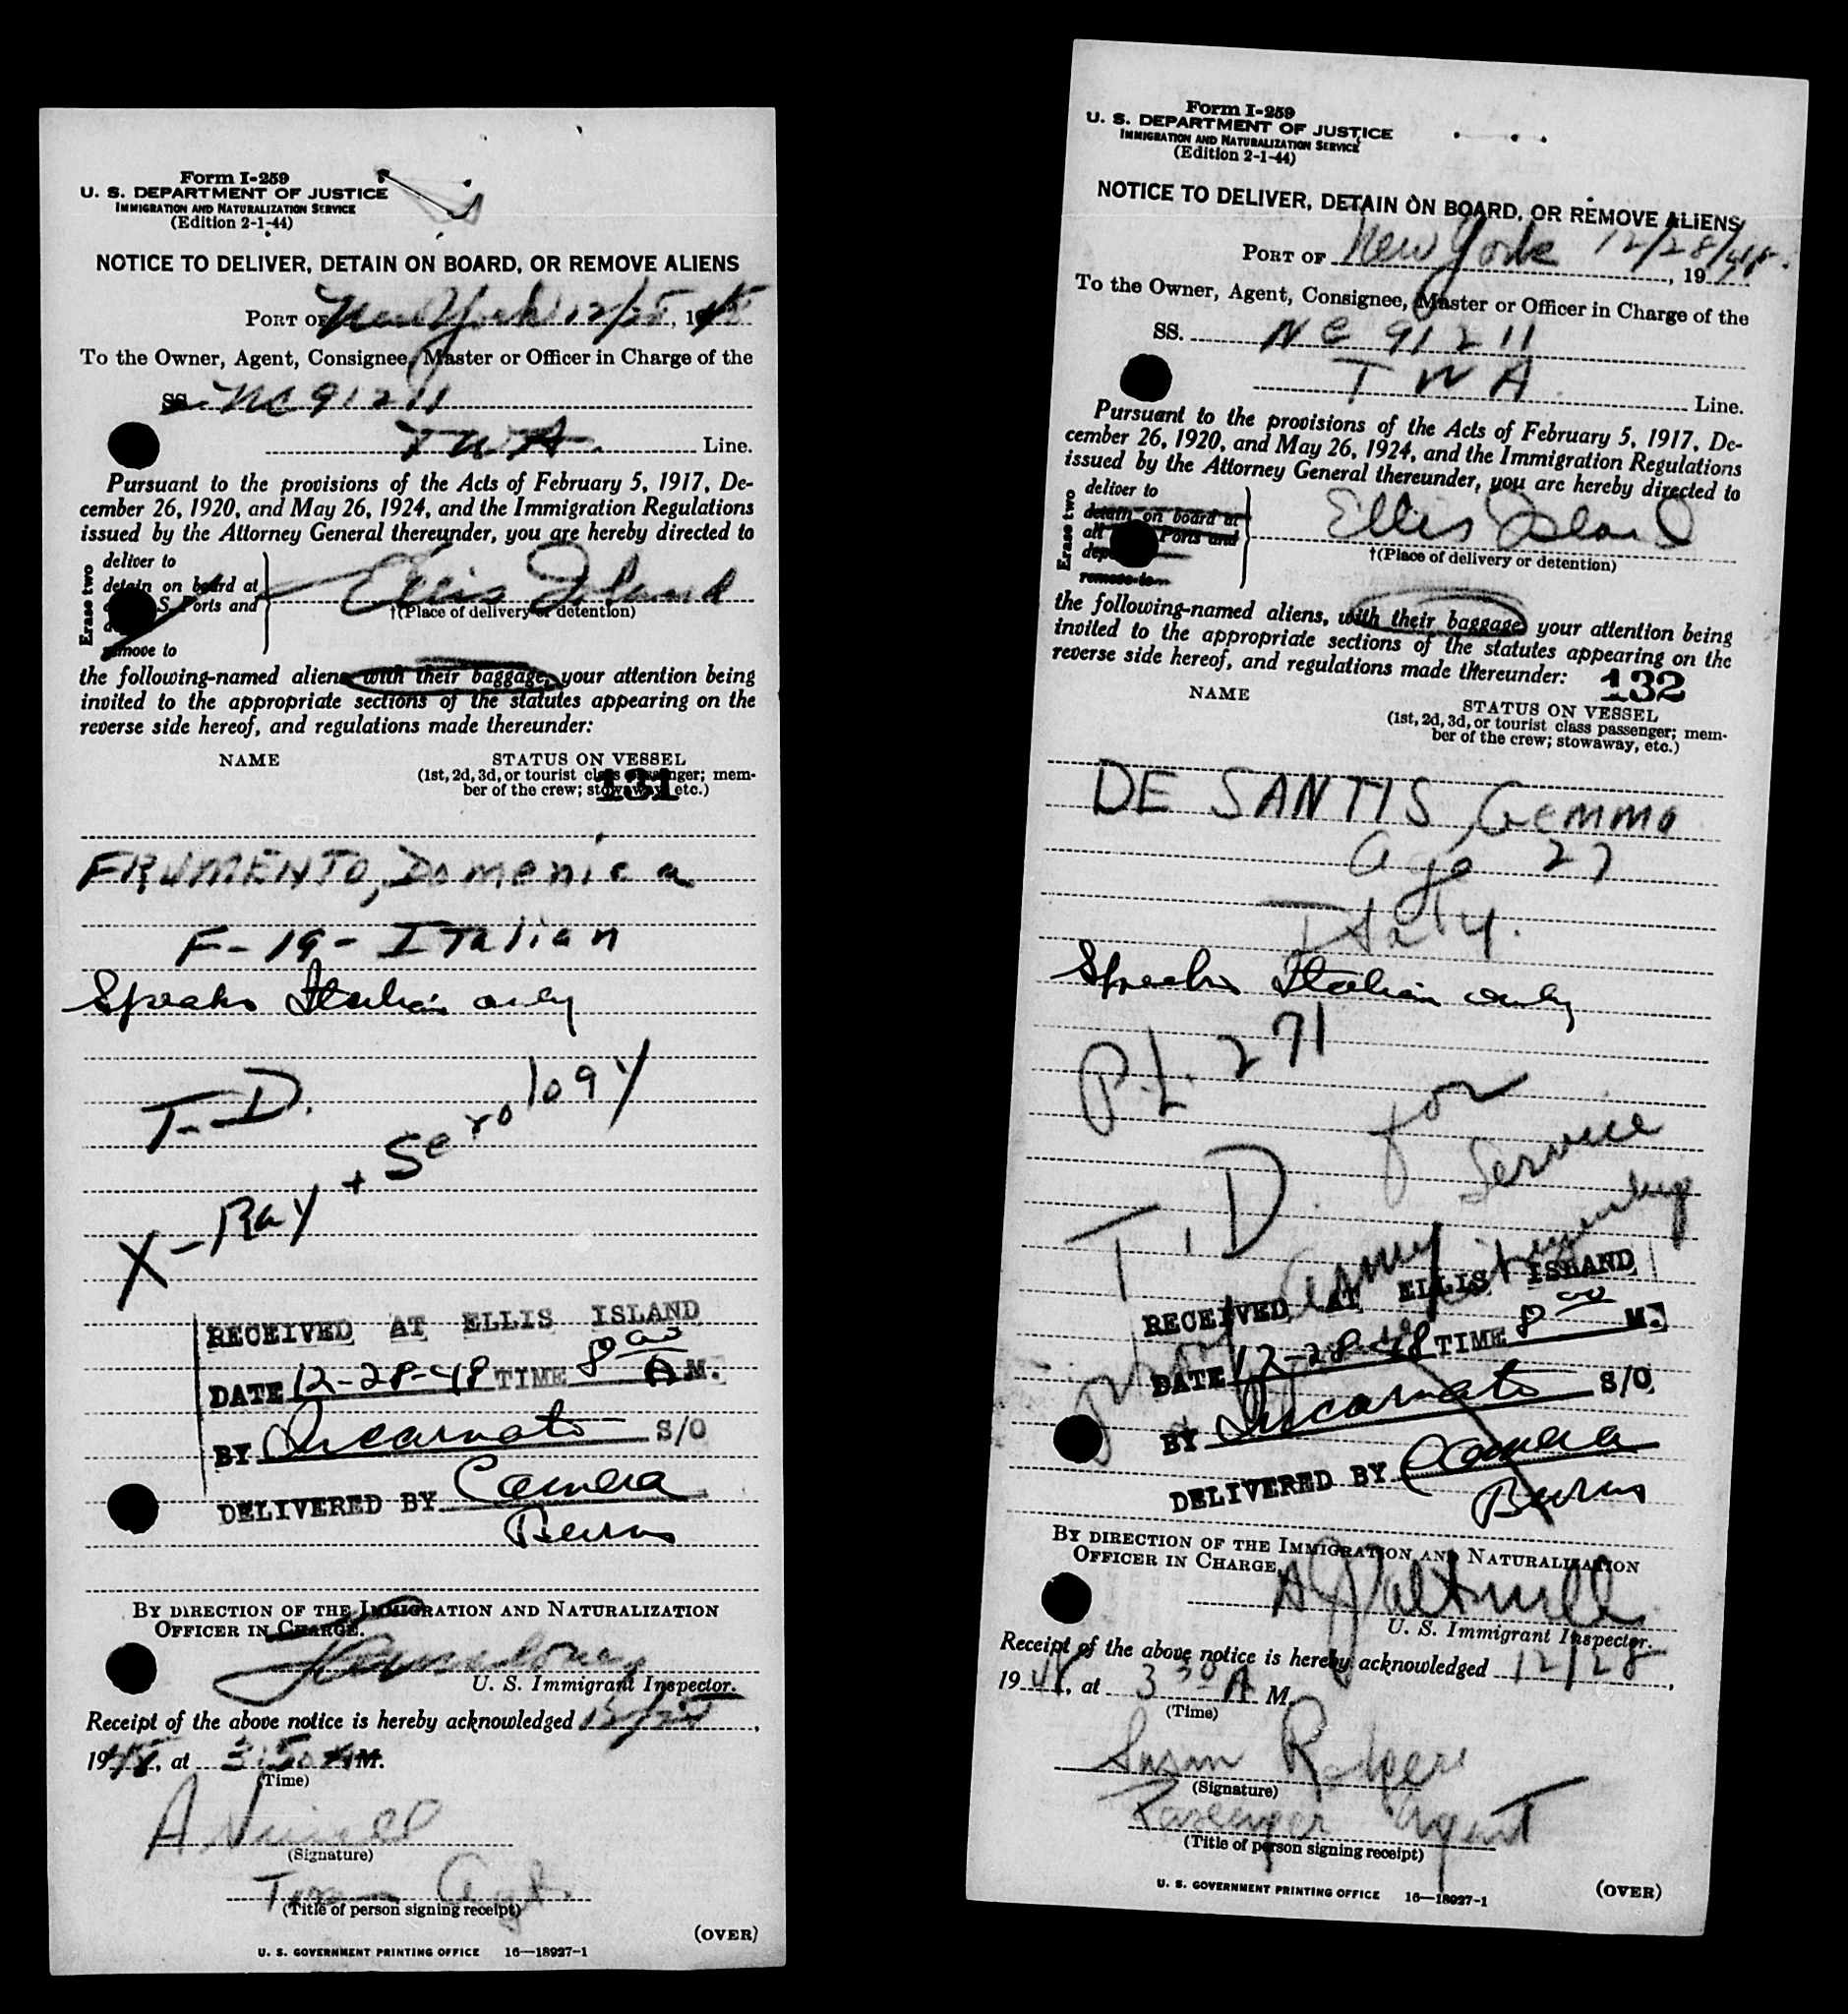 Form I-259
U. S. DEPARTMENT OF JUSTICE
IMMIGRATION AND NATURALIZATION SERVICE
(Edition 2-1-44)
NOTICE TO DELIVER, DETAIN ON BOARD, OR REMOVE ALIENS
PORT OF New York 12/28, 1948
To the Owner, Agent, Consignee, Master or Officer in Charge of the
SS. NC 91211
TWA Line.
Pursuant to the provisions of the Acts of February 5, 1917, De-
cember 26, 1920, and May 26, 1924, and the Immigration Regulations
issued by the Attorney General thereunder, you are hereby directed to
Erase two
deliver to
detain on board at
S. Ports and
remove to
Ellis Island
†(Place of delivery or detention)
the following-named aliens with their baggage, your attention being
invited to the appropriate sections of the statutes appearing on the
reverse side hereof, and regulations made thereunder:
NAME STATUS ON VESSEL
(1st, 2d, 3d, or tourist class passenger; mem-
ber of the crew; stowaway, etc.)
131
FRUMENTO, Domenica
F-19-Italian
Speaks Italian only
T.D.
X-Ray + Serology
RECEIVED AT ELLIS ISLAND
DATE 12-28-48 TIME 8 00 A M.
BY Incarnato S/O
DELIVERED BY Camera
Burns
BY DIRECTION OF THE IMMIGRATION AND NATURALIZATION
OFFICER IN CHARGE.
U. S. Immigrant Inspector.
Receipt of the above notice is hereby acknowledged 12/28,
1948, at 3:50 A M.
(Time)
(Signature)
Agt.
(Title of person signing receipt)
(OVER)
U. S. GOVERNMENT PRINTING OFFICE 16—18927-1
Form I-259
U. S. DEPARTMENT OF JUSTICE
IMMIGRATION AND NATURALIZATION SERVICE
(Edition 2-1-44)
NOTICE TO DELIVER, DETAIN ON BOARD, OR REMOVE ALIENS
PORT OF New York 12/28/48, 19
To the Owner, Agent, Consignee, Master or Officer in Charge of the
SS. NC 91211
TWA Line.
Pursuant to the provisions of the Acts of February 5, 1917, De-
cember 26, 1920, and May 26, 1924, and the Immigration Regulations
issued by the Attorney General thereunder, you are hereby directed to
Erase two
deliver to
detain on board at
all Ports and
remove to
Ellis Island
†(Place of delivery or detention)
the following-named aliens, with their baggage, your attention being
invited to the appropriate sections of the statutes appearing on the
reverse side hereof, and regulations made thereunder: 132
NAME STATUS ON VESSEL
(1st, 2d, 3d, or tourist class passenger; mem-
ber of the crew; stowaway, etc.)
DE SANTIS Gemma
age 27
Italy.
Speaks Italian only
P.L. 271
T.D. for
Service
RECEIVED AT ELLIS ISLAND
DATE 12-28-48 TIME 8 00 M.
BY Incarnato S/O
DELIVERED BY Camera
Burns
BY DIRECTION OF THE IMMIGRATION AND NATURALIZATION
OFFICER IN CHARGE,
U. S. Immigrant Inspector.
Receipt of the above notice is hereby acknowledged 12/28,
1948, at 3 30 A M.
(Time)
Susan
(Signature)
Passenger Agent
(Title of person signing receipt)
U. S. GOVERNMENT PRINTING OFFICE 16—18927-1 (OVER)